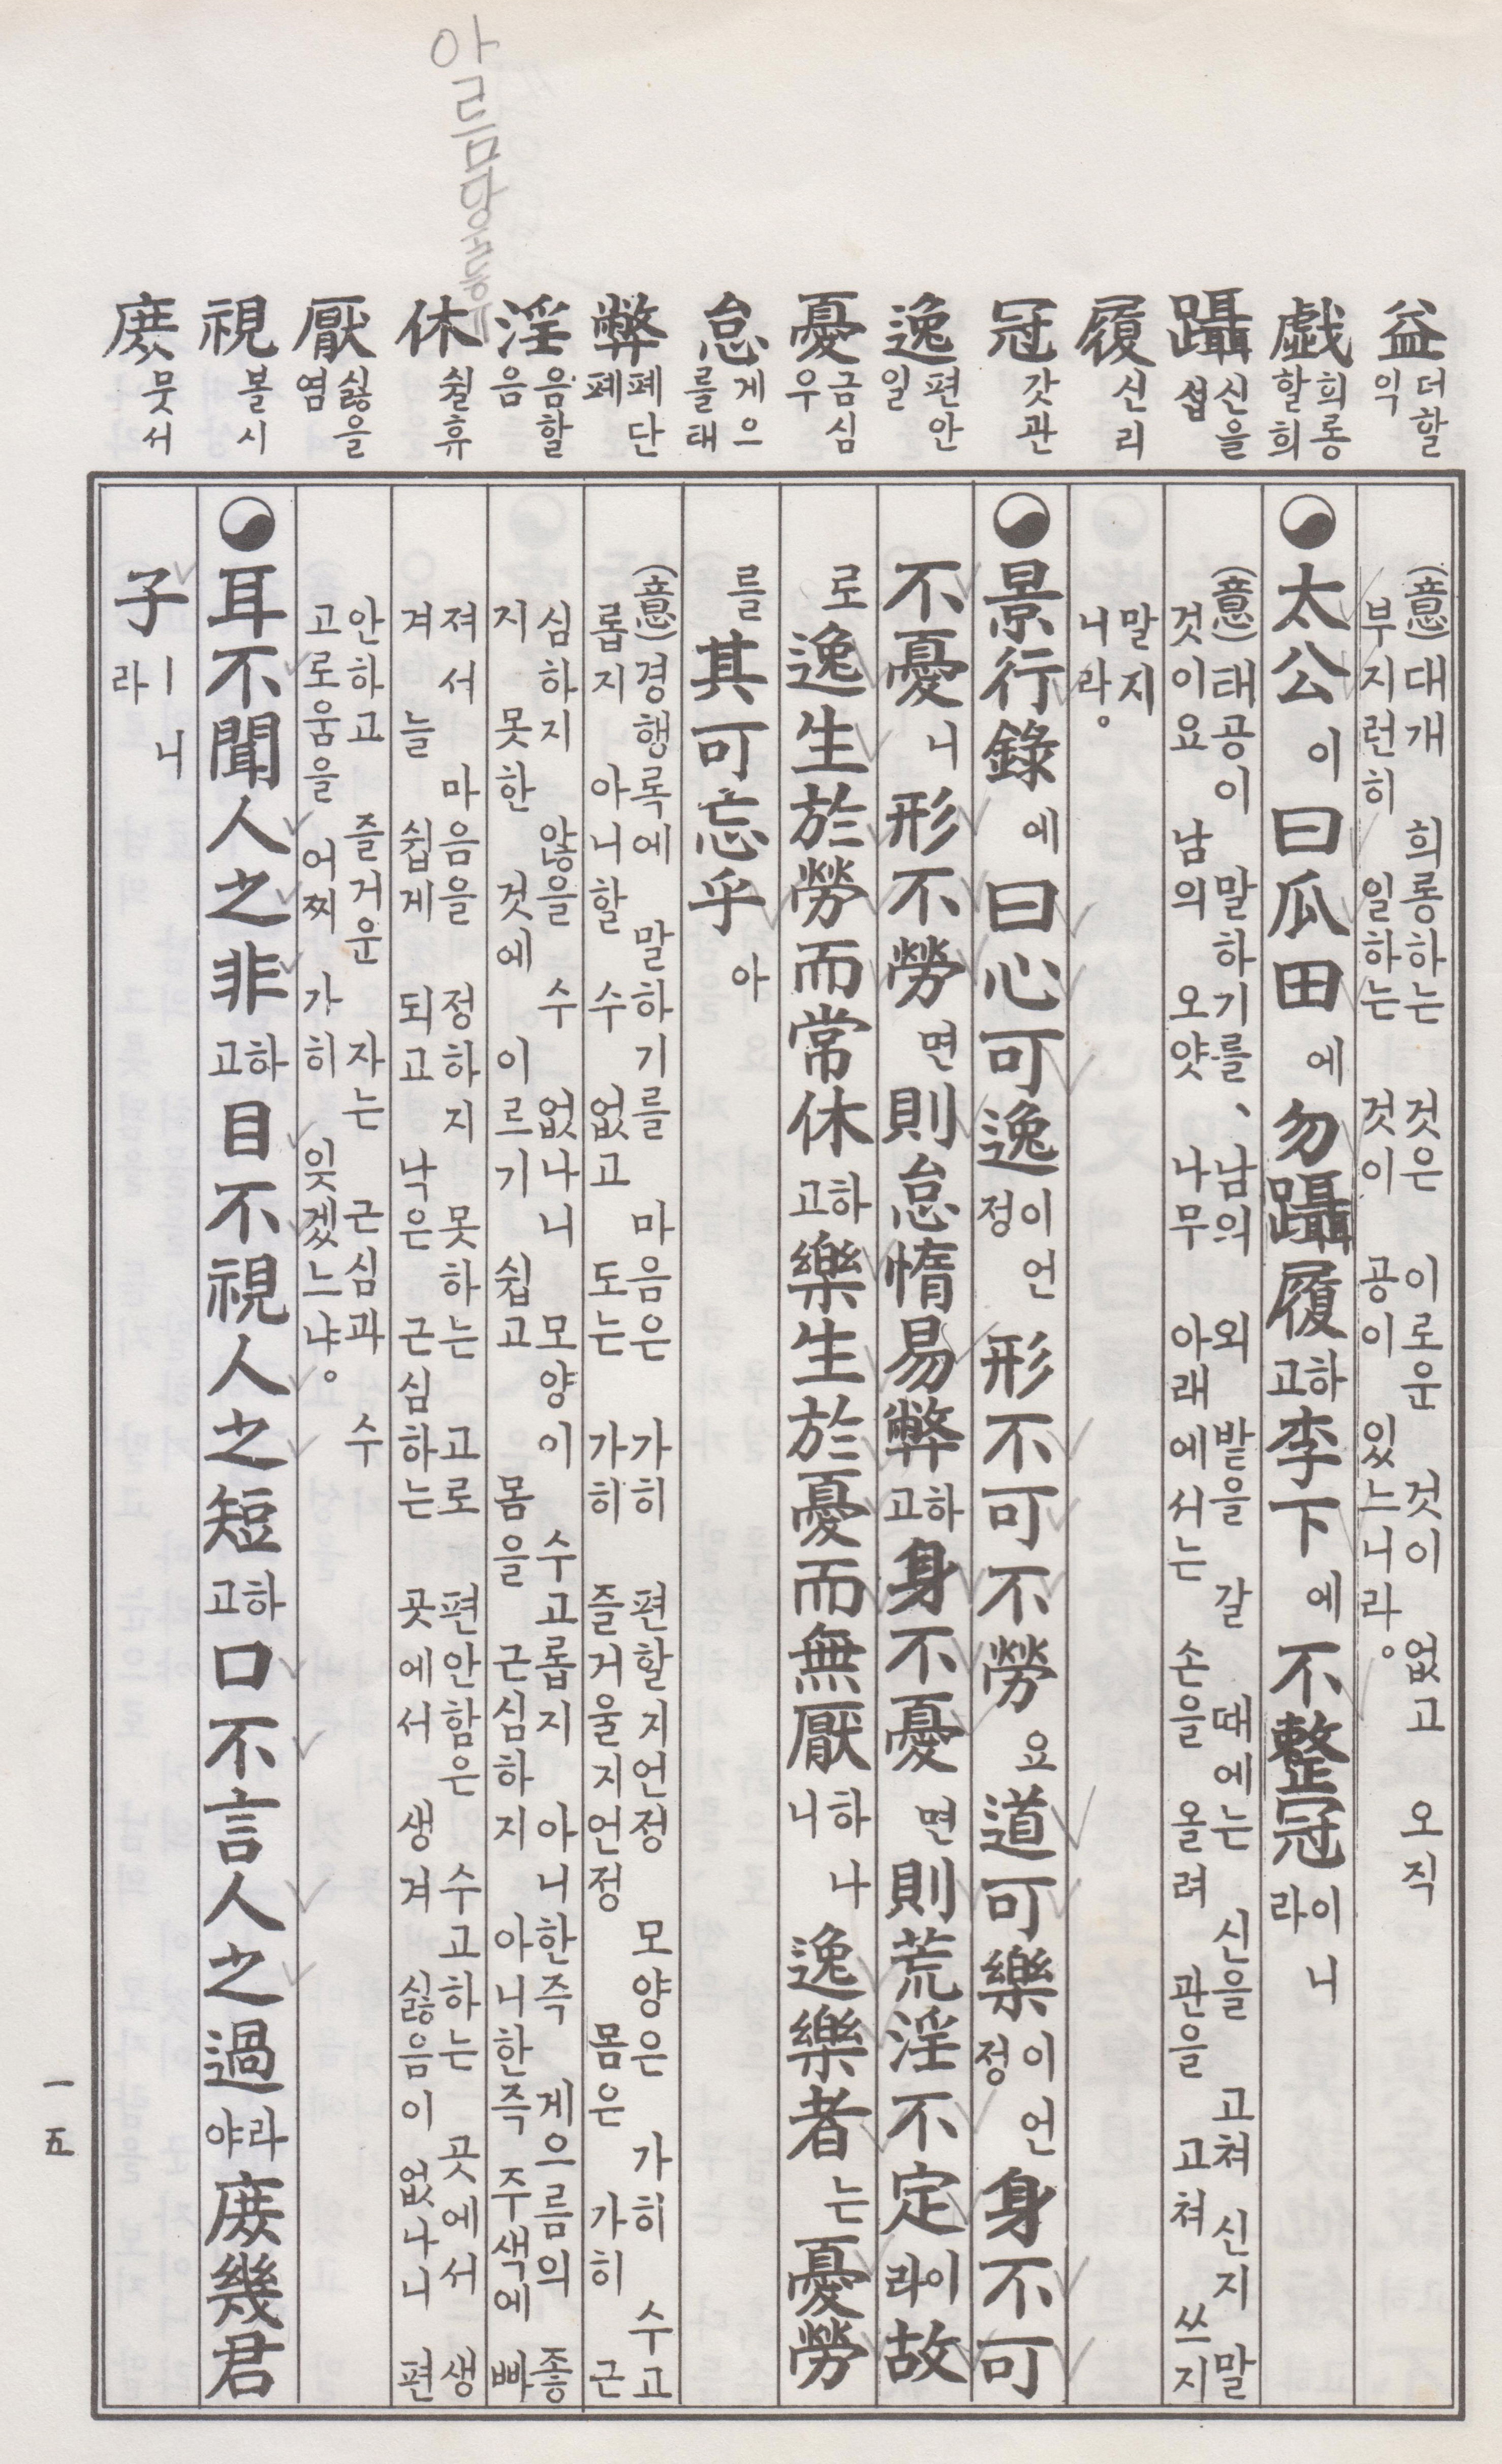 益 더할 익
戱 희롱할 희
躡 신을 섭
履 신 리
冠 갓 관
逸 편안 일
憂 금심 우
怠 게으를 태
弊 폐단 폐
淫 음할 음
休 쉴 휴
厭 싫을 염
視 볼 시
庶 뭇 서
(意) 대개 희롱하는 것은 이로운 것이 없고 오직
부지런히 일하는 것이 공이 있느니라。
太公이 曰 瓜田에 勿躡履하고 李下에 不整冠이니라
(意) 태공이 말하기를、 남의 외밭을 갈 때에는 신을 고쳐 신지 말
것이요 남의 오얏 나무 아래에서는 손을 올려 관을 고쳐 쓰지
말지
니라。
景行錄에 曰 心可逸이언정 形不可不勞요 道可樂이언정 身不可
不憂니 形不勞면 則怠惰易弊하고 身不憂면 則荒淫不定이라 故
로 逸生於勞而常休하고 樂生於憂而無厭하나니 逸樂者는 憂勞
를 其可忘乎아
(意) 경행록에 말하기를 마음은 가히 편할지언정 모양은 가히 수고
롭지 아니할 수 없고 도는 가히 즐거울지언정 몸은 가히 근
심하지 않을 수 없나니 모양이 수고롭지 아니한즉 게으름의 좋
지 못한 것에 이르기 쉽고 몸을 근심하지 아니한즉 주색에 빠
져서 마음을 정하지 못하는 고로 편안함은 수고하는 곳에서 생
겨 늘 쉽게 되고 낙은 근심하는 곳에서 생겨 싫음이 없나니 편
안하고 즐거운 자는 근심과 수
고로움을 어찌 가히 잊겠느냐。
耳不聞人之非하고 目不視人之短하고 口不言人之過라야 庶幾君
子ㅣ니라
一五